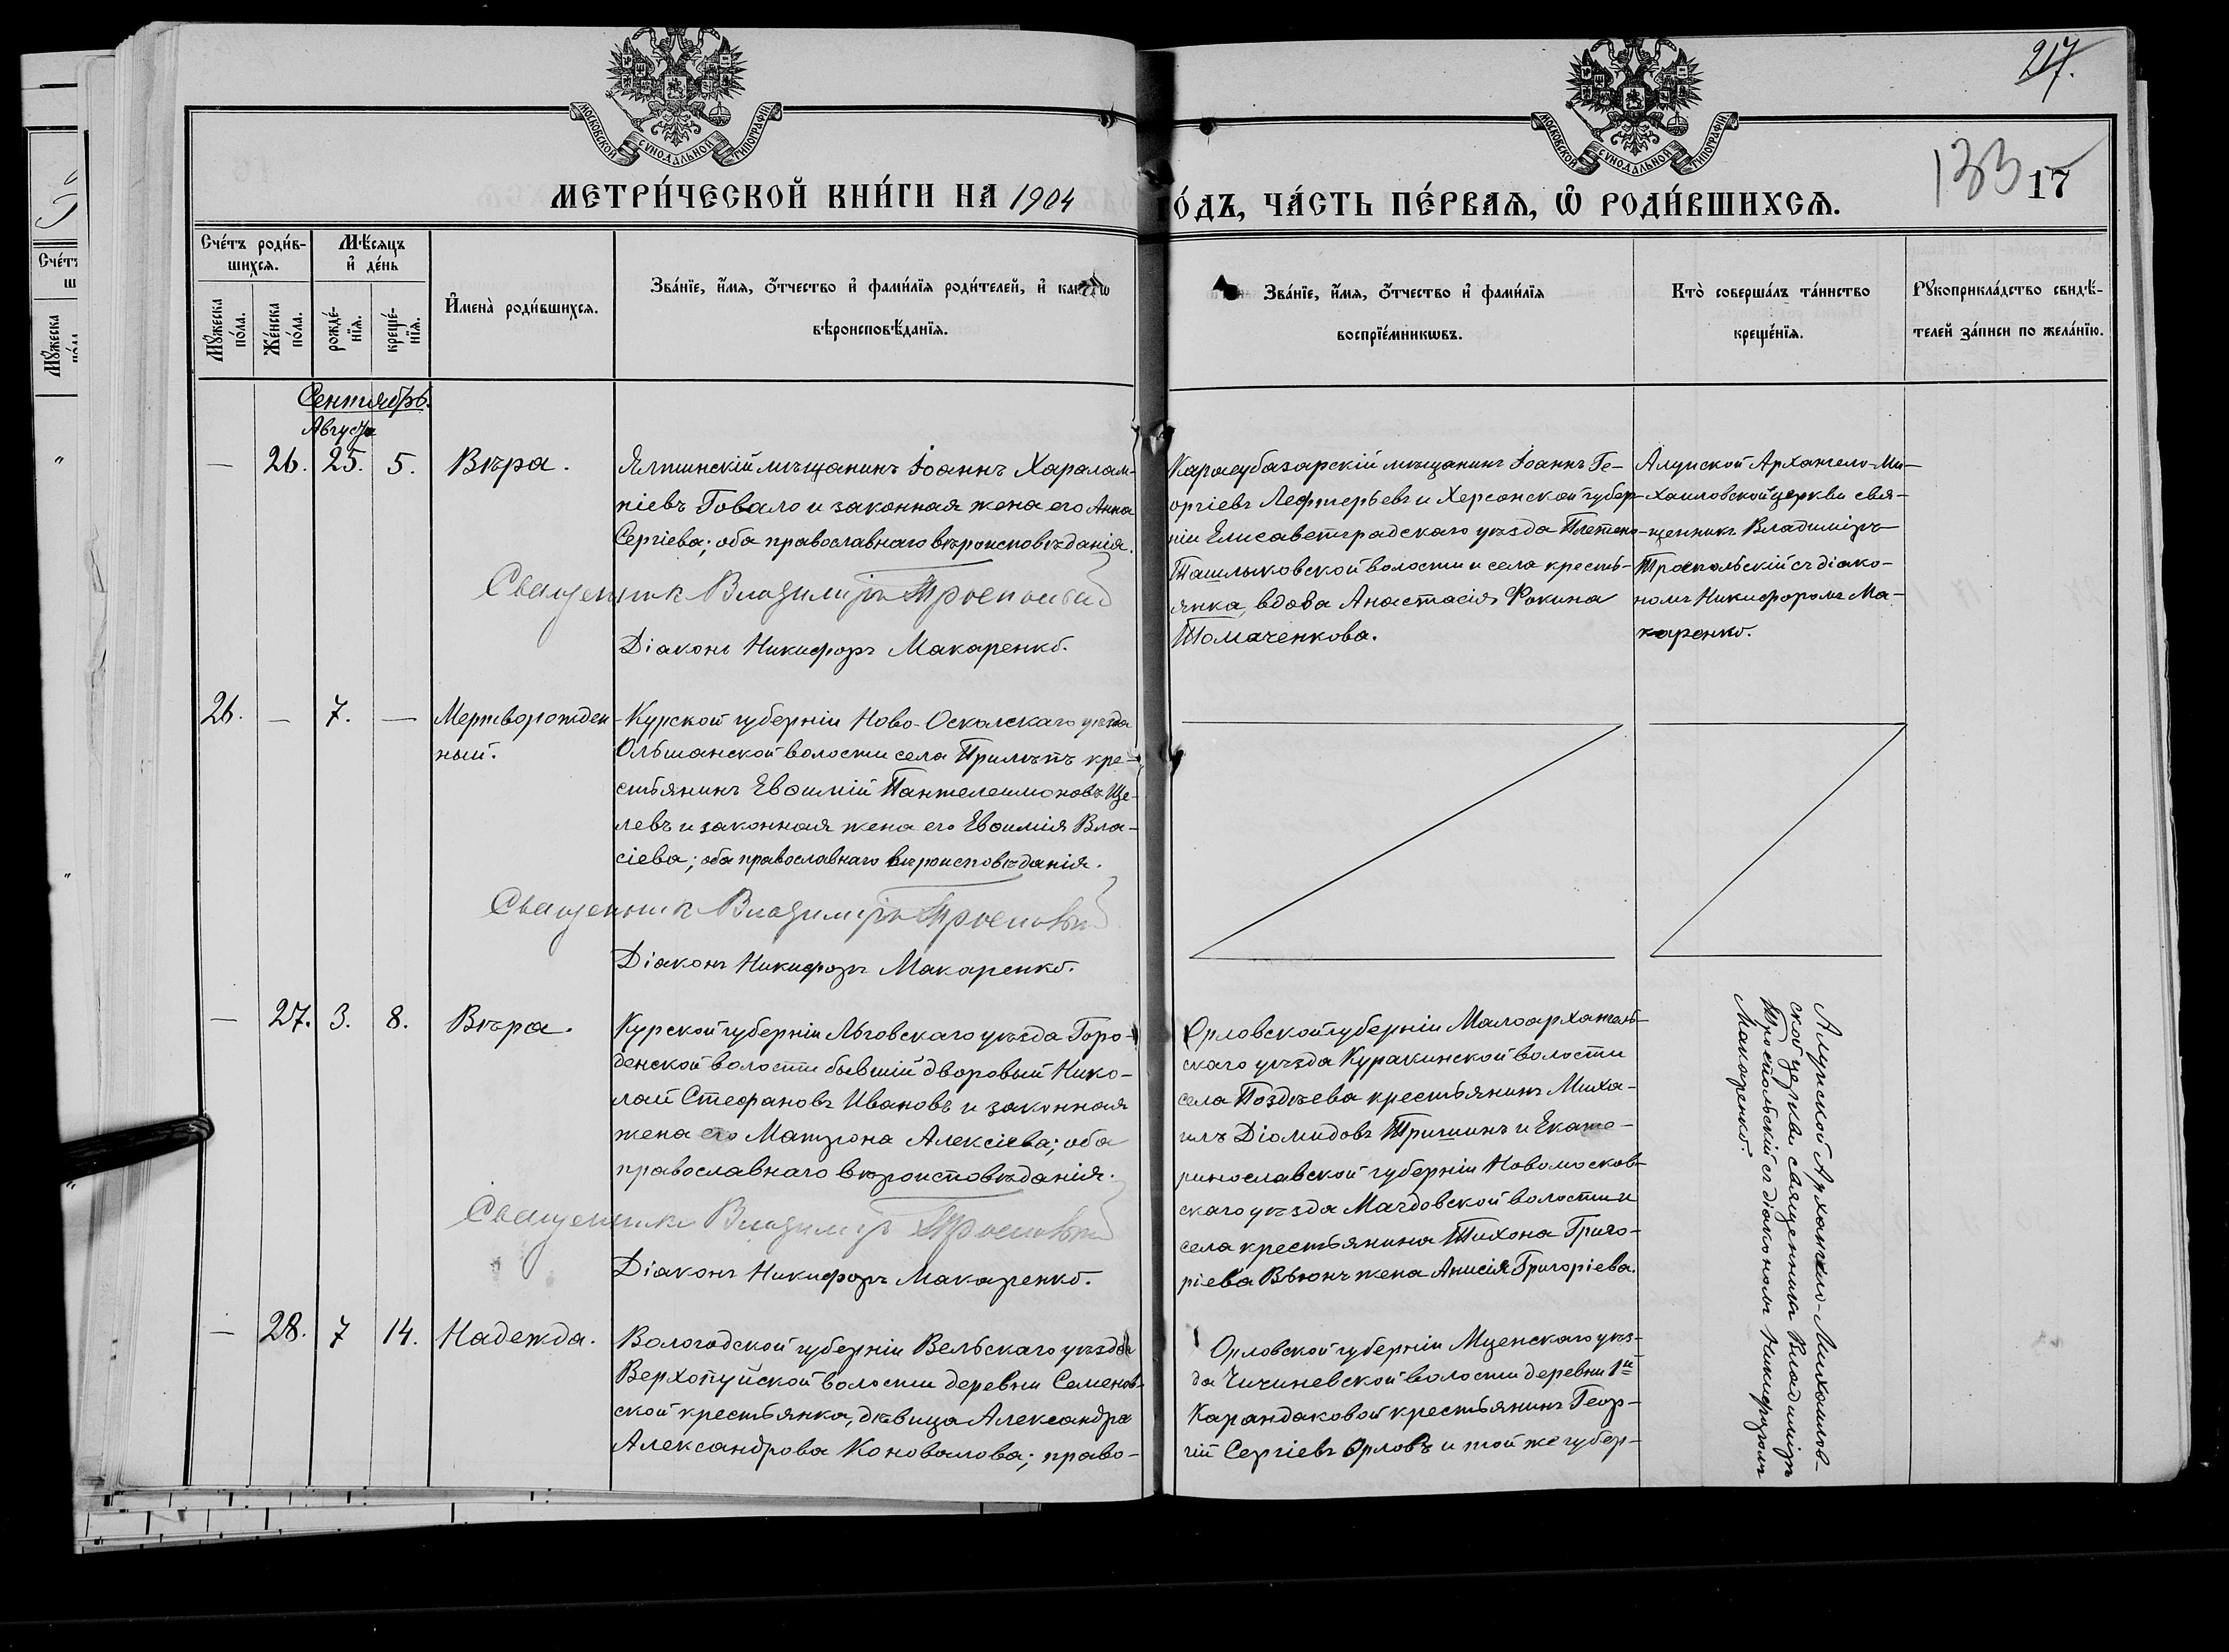 217.
133
17
МОСКОВСКОЙ СѴНОДАЛЬНОЙ ТИПОГРАФІИ
МОСКОВСКОЙ СѴНОДАЛЬНОЙ ТИПОГРАФІИ
МЕТРИ́ЧЕСКОЙ КНИ́ГИ НА 1904
О́ДЪ, ЧА́СТЬ ПЕ́РВАѦ, Ѡ РОДИ́ВШИХСѦ.
Сче́тъ роди́в-
шихсѧ.
Мꙋжеска по́ла.
Же́нска по́ла.
Мѣ́сяцъ
и҆ де́нь
рожде́-
нїѧ.
креще́-
нїѧ.
И҆мена̀ роди́вшихсѧ.
Зва́нїе, и҆́мѧ, ѻ҆́тчество и҆ фами́лїѧ роди́телей, и҆
вѣроисповѣ́данїѧ.
Зва́нїе, и҆́мѧ, ѻ҆́тчество и҆ фами́лїѧ
воспрїе́мникѡвъ.
Кто̀ соверша́лъ та́инство
креще́нїѧ.
Рꙋкоприкла́дство свидѣ́-
телей за́писи по жела́нїю.
Сентябрь.
Августа
— 26. 25. 5. Вѣра.
Ялтинскій мѣщанинъ Іоаннъ Харалам-
піевъ Говало и законная жена его Анна
Сергіева; оба православнаго вѣроисповѣданія.
Священникъ Владиміръ Троепольскій
Діаконъ Никифоръ Макаренко.
Карасубазарскій мѣщанинъ Іоаннъ Ге-
оргіевъ Лефтерьевъ и Херсонской губер-
ніи Елисаветградскаго уѣзда Плетено-
Ташлыковской волости и села кресть-
янка, вдова Анастасія Фокина
Томаченкова.
Алупской Архангело-Ми-
хаиловской церкви свя-
щенникъ Владиміръ
Троепольскій съ діако-
номъ Никифоромъ Ма-
каренко.
26. — 7. — Мертворожден-
ный.
Курской губерніи Ново-Оскольскаго уѣзда
Ольшанской волости села Прилѣпъ кре-
стьянинъ Евѳимій Пантелеимоновъ Ще-
левъ и законная жена его Евѳимія Вла-
сіева; оба православнаго вѣроисповѣданія.
Священникъ Владиміръ Троепольскій
Діаконъ Никифоръ Макаренко.
— 27. 3. 8. Вѣра.
Курской губерніи Льговскаго уѣзда Горо-
денской волости бывшій дворовый Нико-
лай Стефановъ Ивановъ и законная
жена его Матрона Алексіева; оба
православнаго вѣроисповѣданія.
Священникъ Владиміръ Троепольскій
Діаконъ Никифоръ Макаренко.
Орловской губерніи Малоархангель-
скаго уѣзда Куракинской волости
села Поздѣева крестьянинъ Миха-
илъ Діомидовъ Тришинъ и Екате-
ринославской губерніи Новомосков-
скаго уѣзда волости и
села крестьянина Тихона Григо-
ріева Вьюнъ жена Анисія Григоріева.
Алупской Архангело-Михаилов-
ской церкви священникъ Владиміръ
Троепольскій съ діакономъ Никифоромъ
Макаренко.
— 28. 7 14. Надежда.
Вологодской губерніи Вельскаго уѣзда
Верхопуйской волости деревни Семенов-
ской крестьянка, дѣвица Александра
Александрова Коновалова; право-
Орловской губерніи Мценскаго уѣз-
да Чичиневской волости деревни 1й
Карандаковой крестьянинъ Геор-
гій Сергіевъ Орловъ и той же губер-